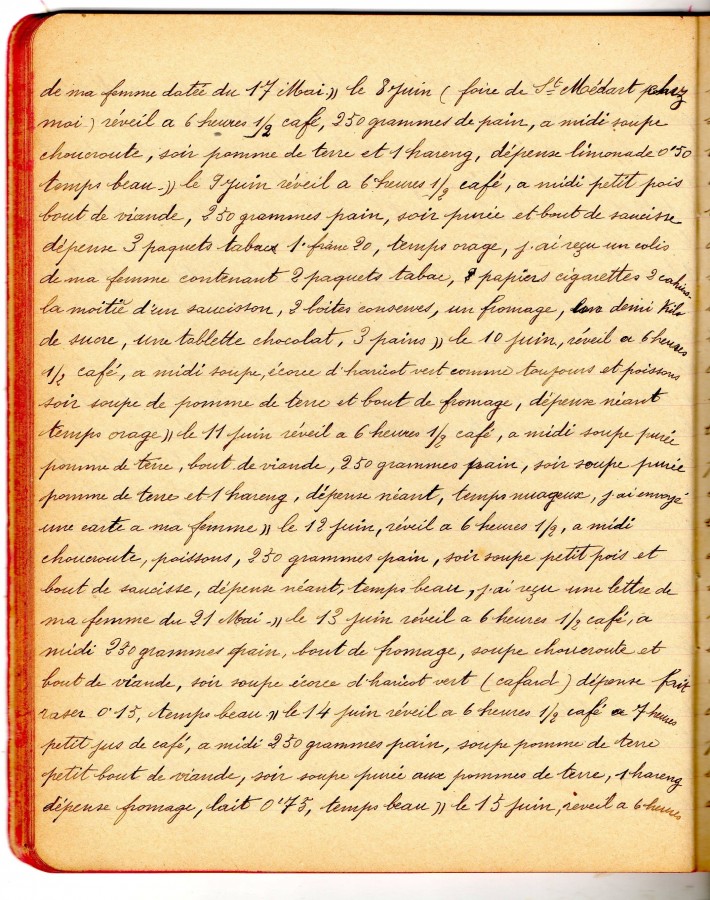 de ma femme datée du 17 Mai )) le 8 Juin ( foire de St Médart chez
moi ) réveil a 6 heures 1/2 café, 250 grammes de pain, a midi soupe
choucroute, soir pomme de terre et 1 hareng, dépense limonade 0f50
temps beau )) le 9 Juin réveil a 6 heures 1/2 café, a midi petit pois
bout de viande, 250 grammes pain, soir purée et bout de saucisse
dépense 3 paquets tabac 1 franc 20, temps orage, j'ai reçu un colis
de ma femme contenant 2 paquets tabac, papiers cigarettes 2 cahiers
la moitié d'un saucisson, 2 boites conserves, un fromage, demi Kilo
de sucre, une tablette chocolat, 3 pains )) le 10 Juin, réveil a 6 heures
1/2 café, a midi soupe, écorce d'haricot vert comme toujours et poissons
soir soupe de pomme de terre et bout de fromage, dépense néant
temps orage )) le 11 Juin réveil a 6 heures 1/2 café, a midi soupe purée
pomme de terre, bout de viande, 250 grammes pain, soir soupe purée
pomme de terre et 1 hareng, dépense néant, temps nuageux, j'ai envoyé
une carte a ma femme )) le 12 Juin, réveil a 6 heures 1/2, a midi
choucroute, poissons, 250 grammes pain, soir soupe petit pois et
bout de saucisse, dépense néant, temps beau, j'ai reçu une lettre de
ma femme du 21 Mai )) le 13 Juin réveil a 6 heures 1/2 café, a
midi 250 grammes pain, bout de fromage, soupe choucroute et
bout de viande, soir soupe écorce d'haricot vert ( cafard ) dépense fait
raser 0f15, temps beau )) le 14 Juin réveil a 6 heures 1/2 café a 7 heures
petit jus de café, a midi 250 grammes pain, soupe pomme de terre
petit bout de viande, soir soupe purée aux pommes de terre, 1 hareng
dépense fromage, lait 0f75, temps beau )) le 15 Juin, reveil a 6 heures